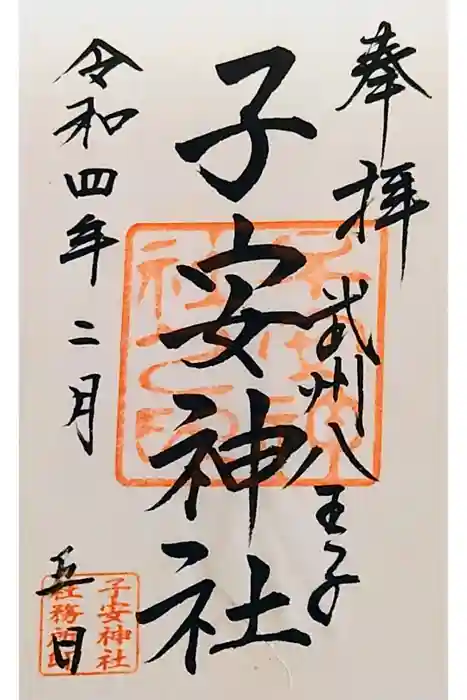 奉拝
武州八王子
子安神社
令和四年二月五日
子安神社
社務所印